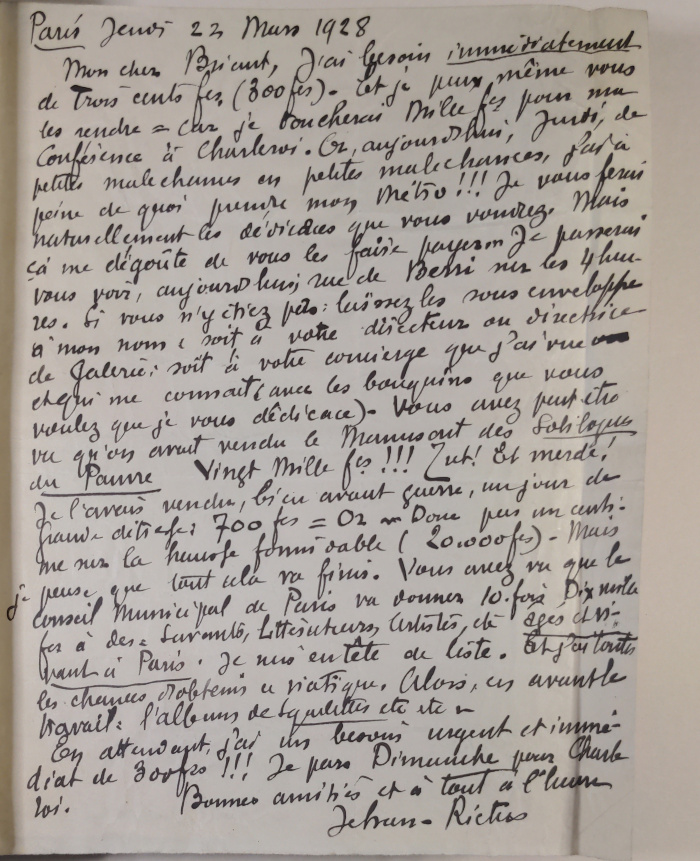 Paris Jeudi 22 Mars 1928
Mon cher Briant, J'ai besoin immédiatement
de Trois cents fcs (300 fcs). Et je peux même vous
les rendre = car je toucherai Mille fcs pour ma
Conférence à Charleroi. Or, aujourd'hui, Jeudi, de
petites malechances en petites malechances, j'ai à
peine de quoi prendre mon Métro!!! Je vous ferai
naturellement les dédicaces que vous voudrez. Mais
çà me dégoûte de vous les faire payer. Je passerai
vous voir, aujourd'hui, rue de Berri sur les 4 heu-
res. Si vous n'y étiez pas: laissez les sous enveloppe
à mon nom: soit à votre directeur ou directrice
de Galerie: soit à votre concierge que j'ai vue
et qui me connait (avec les bouquins que vous
voulez que je vous dédicace). Vous avez peut être
vu qu'on avait vendu le Manuscrit des Soliloques
du Pauvre Vingt Mille fcs!!! Zut! Et merde!
Je l'avais vendu, bien avant guerre, un jour de
grande détresse: 700 fcs = Or Donc pas un centi-
me sur la hausse formidable (20.000 fcs). Mais
je pense que tout cela va finir. Vous avez vu que le
Conseil Municipal de Paris va donner 10 fois Dix mille
fcs à des = Savants, Littérateurs, Artistes, etc âgés et vi-
vant à Paris. Je suis en tête de liste. Et j'ai toutes
les chances d'obtenir ce viatique. Alors, en avant le
travail: l'album de Squelettes etc etc
En attendant, j'ai un besoin urgent et immé-
diat de 300 fcs!!! Je pars Dimanche pour Charle
roi. Bonnes amitiés et à tout à l'heure
Jehan-Rictus